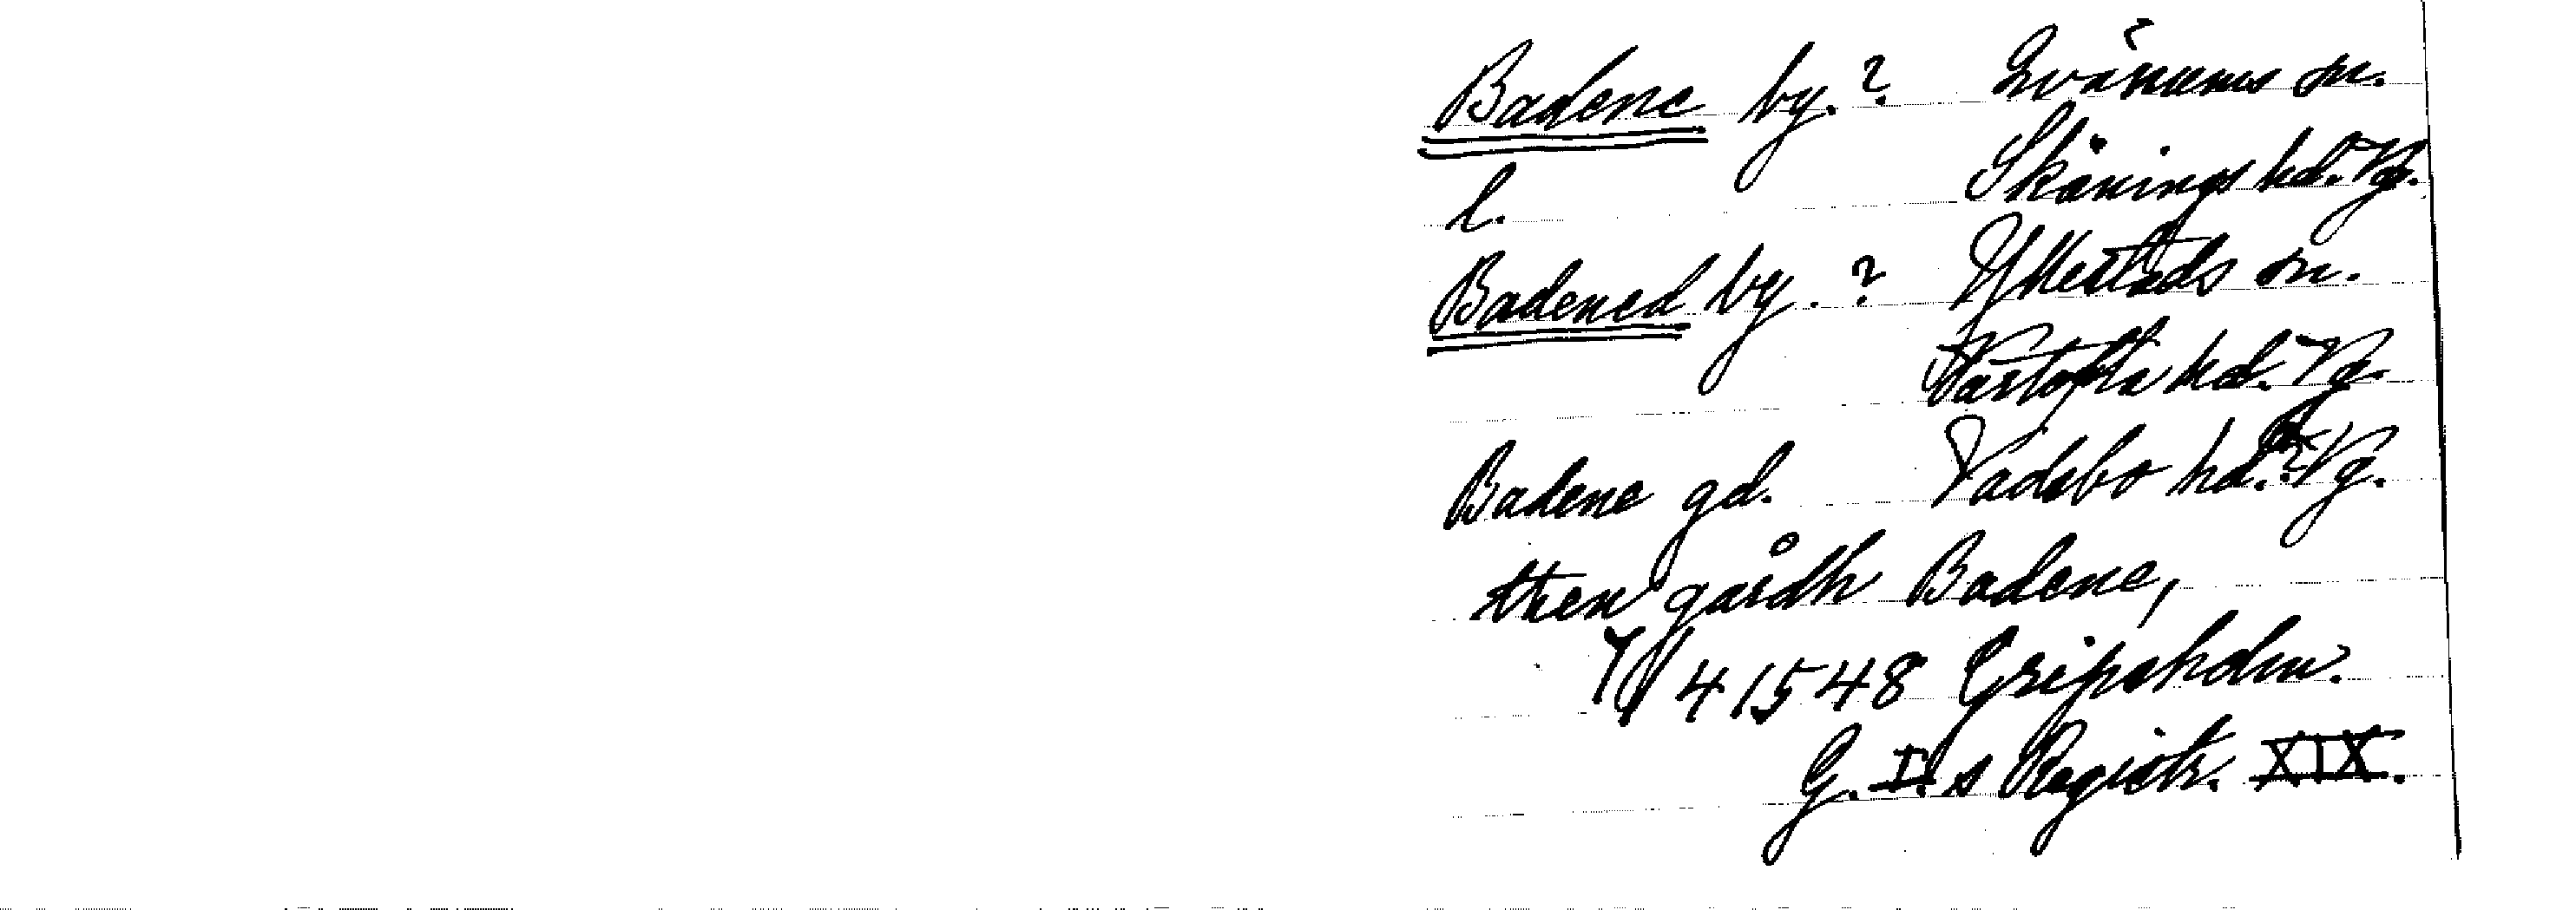 Badene by. ? Kvänums sn.
Skånings hd. Vg.
l.
Badened by. ? Yllestads sn.
Vartofta hd. Vg.
Badene gd. Vadsbo hd.? Vg.
then gårdh Badene,
4 1548 Gripsholm.
G. I.s Registr. XIX.